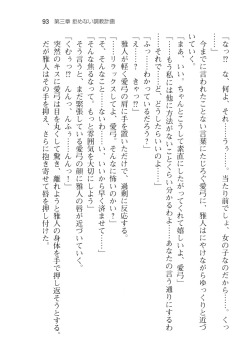 93　第三章 拒めない調教計画
「なっ!?　な、何よ、それ……うぅ……、当たり前でしょ、女の子なのだから……、くっ
……」
今までに言われたことない言葉にたじろぐ愛弓に、雅人はにやけながらゆっくりと近づ
いていく。
「まあいい、ちゃんとこうして素直にしたがってくれて嬉しいよ、愛弓」
「……もう私には他に方法がないことくらい分かるわよ……、あなたの言う通りにするわ
よ……」
「それで、どうすればいいか分かっているだろう？」
「……っ!!」
雅人が軽く愛弓の肩に手を置いただけで、過剰に反応する。
「おっと、リラックスしてくれよ、愛弓、そんなに怖いかい？」
「そ、そんなこと……ないわ……いいから早く済ませて……」
「そんな焦るなって、もっと雰囲気を大切にしよう」
そう言うと、まだ緊張している愛弓の顔に雅人の唇が近づいていく。
「くむぅっ!?　んんぅっ、ふんんっ……！」
突然のキスに愛弓は目を丸くして驚き、離れようと雅人の身体を手で押し返そうとする。
だが雅人はその手を押え、さらに抱き寄せて唇を押し付けた。